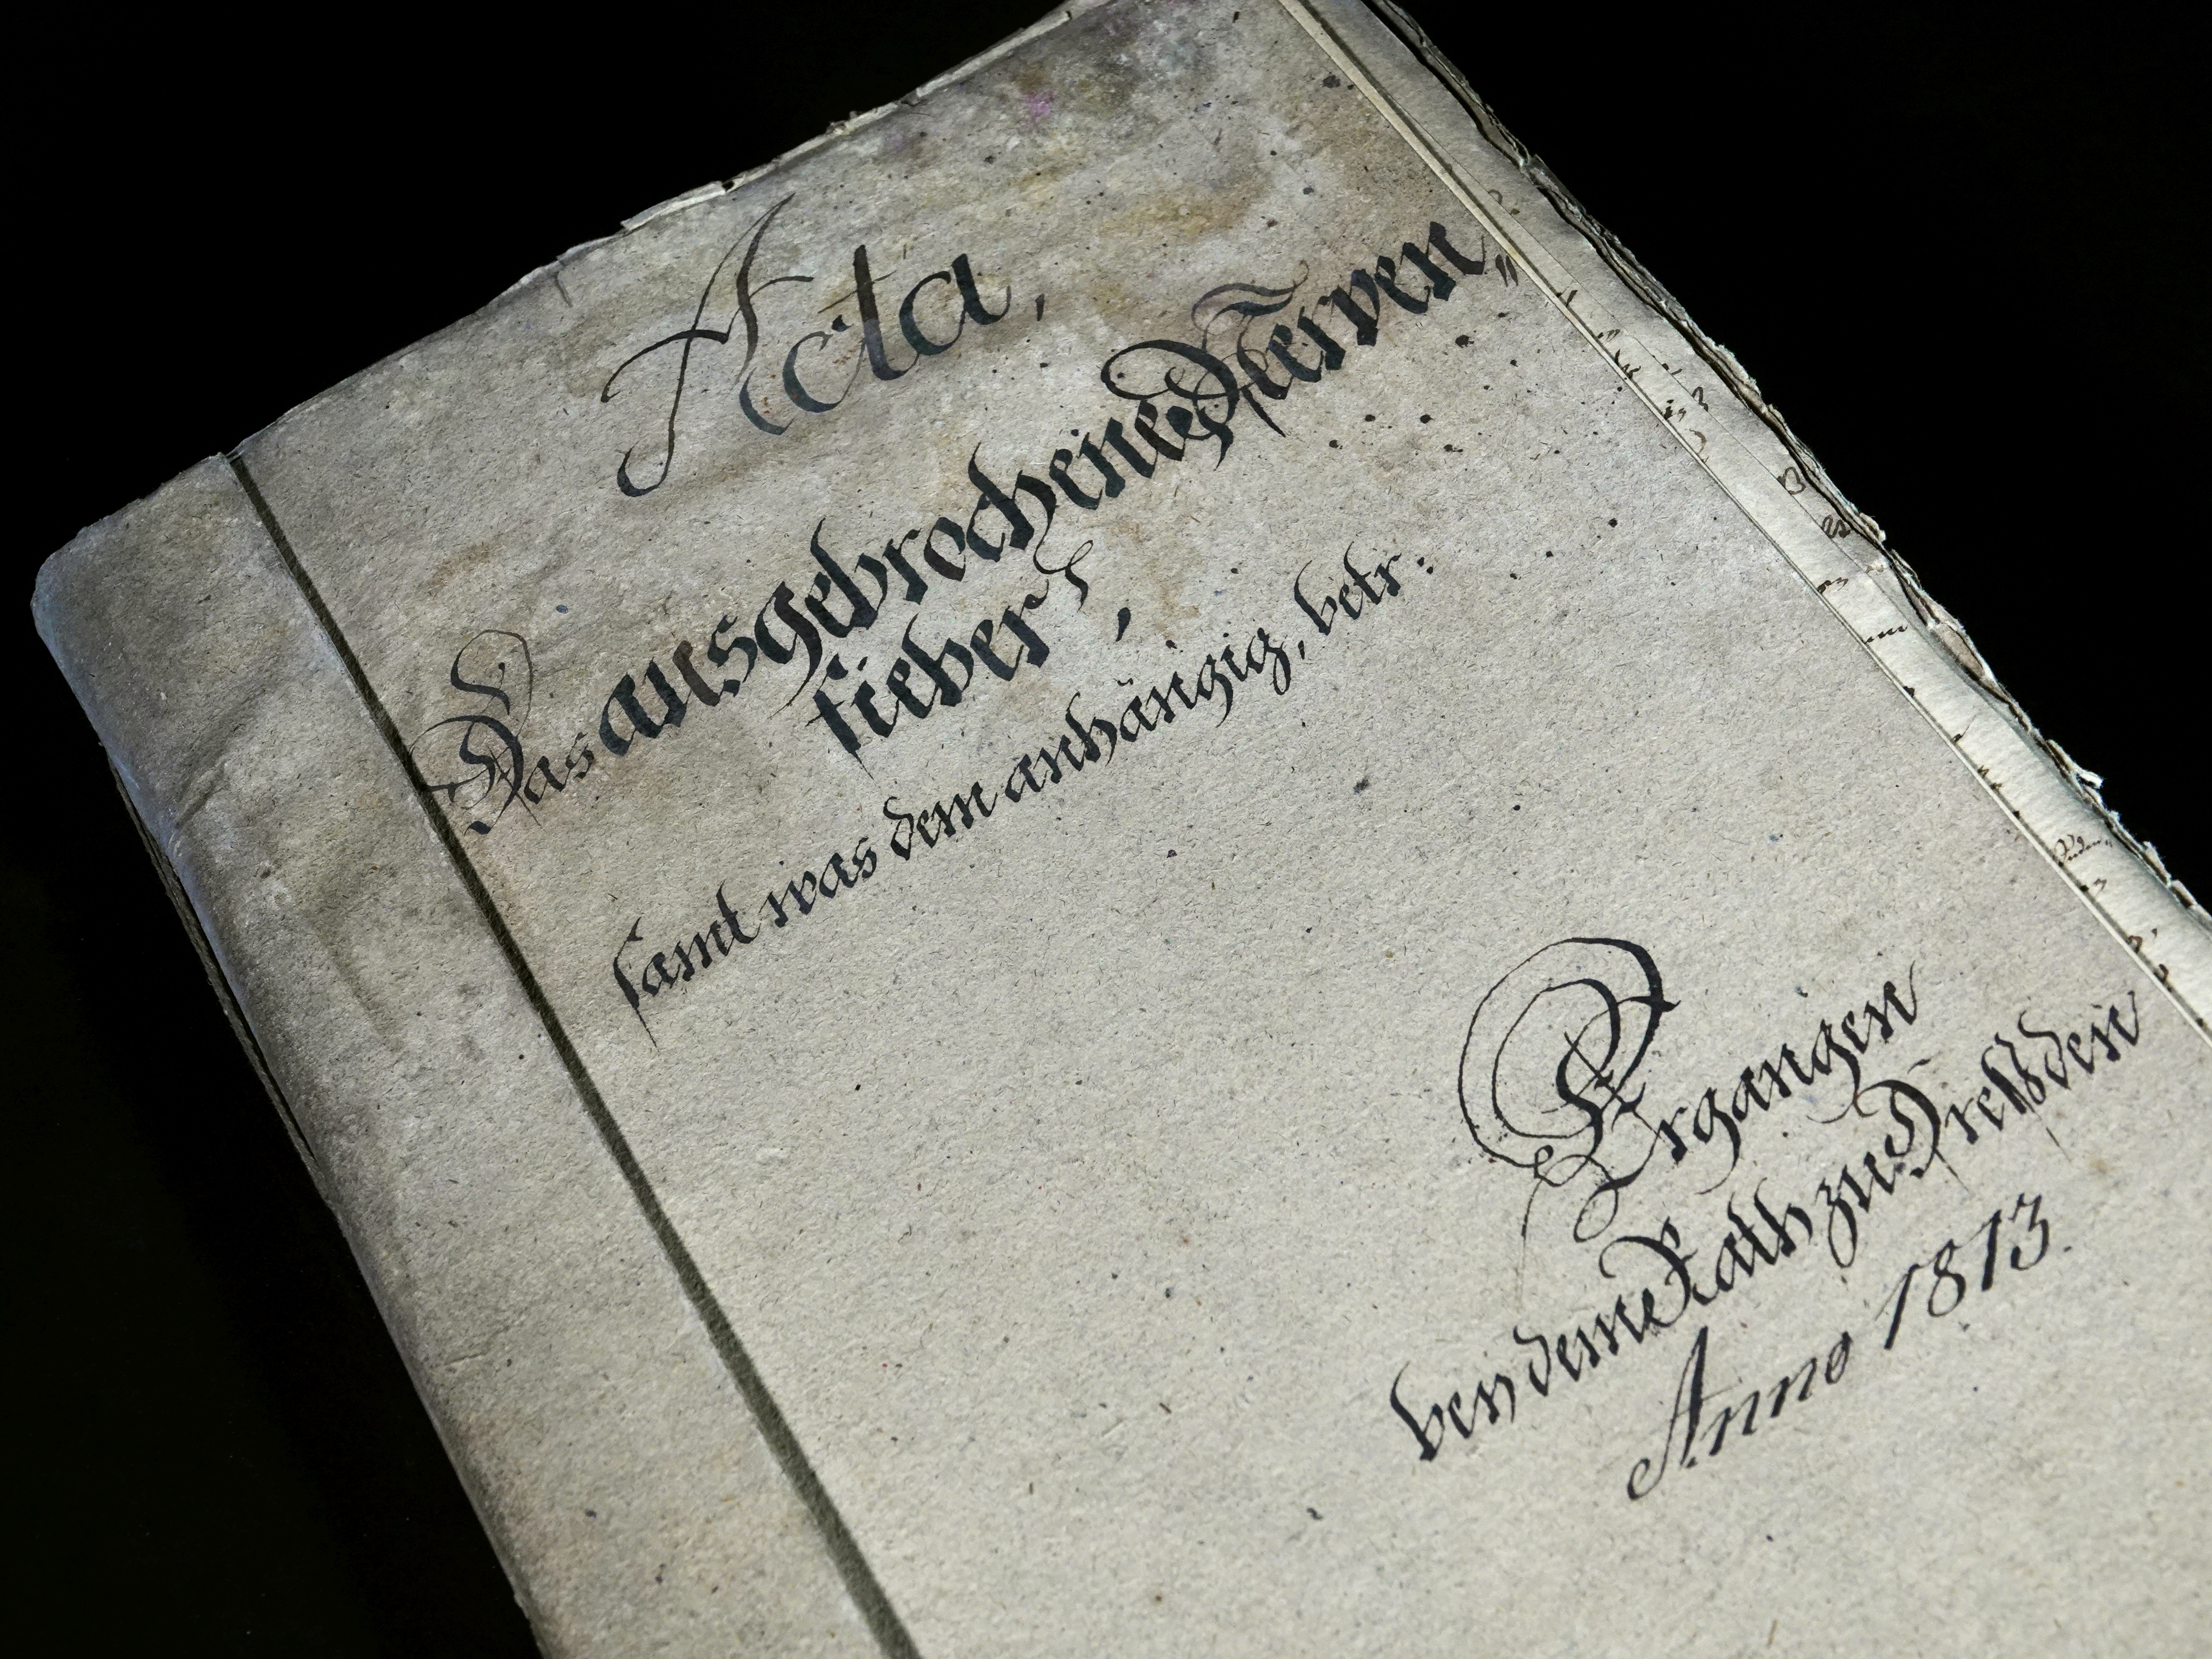 Acta,
Das ausgebrochene Nerven„
fieber,
samt was dem anhängig, betr:
Ergangen
bey deme Rath zu Dreßden
Anno 1813.